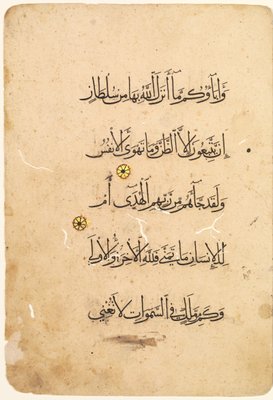 وَآبَآؤُكُم مَّآ أَنزَلَ ٱللَّهُ بِهَا مِن سُلْطَانٍ
إِن يَتَّبِعُونَ إِلَّا ٱلظَّنَّ وَمَا تَهْوَى ٱلْأَنفُسُ
وَلَقَدْ جَآءَهُم مِّن رَّبِّهِمُ ٱلْهُدَىٰٓ أَمْ
لِلْإِنسَانِ مَا تَمَنَّىٰ فَلِلَّهِ ٱلْآخِرَةُ وَٱلْأُولَىٰ
وَكَم مِّن مَّلَكٍ فِي ٱلسَّمَوَاتِ لَا تُغْنِي